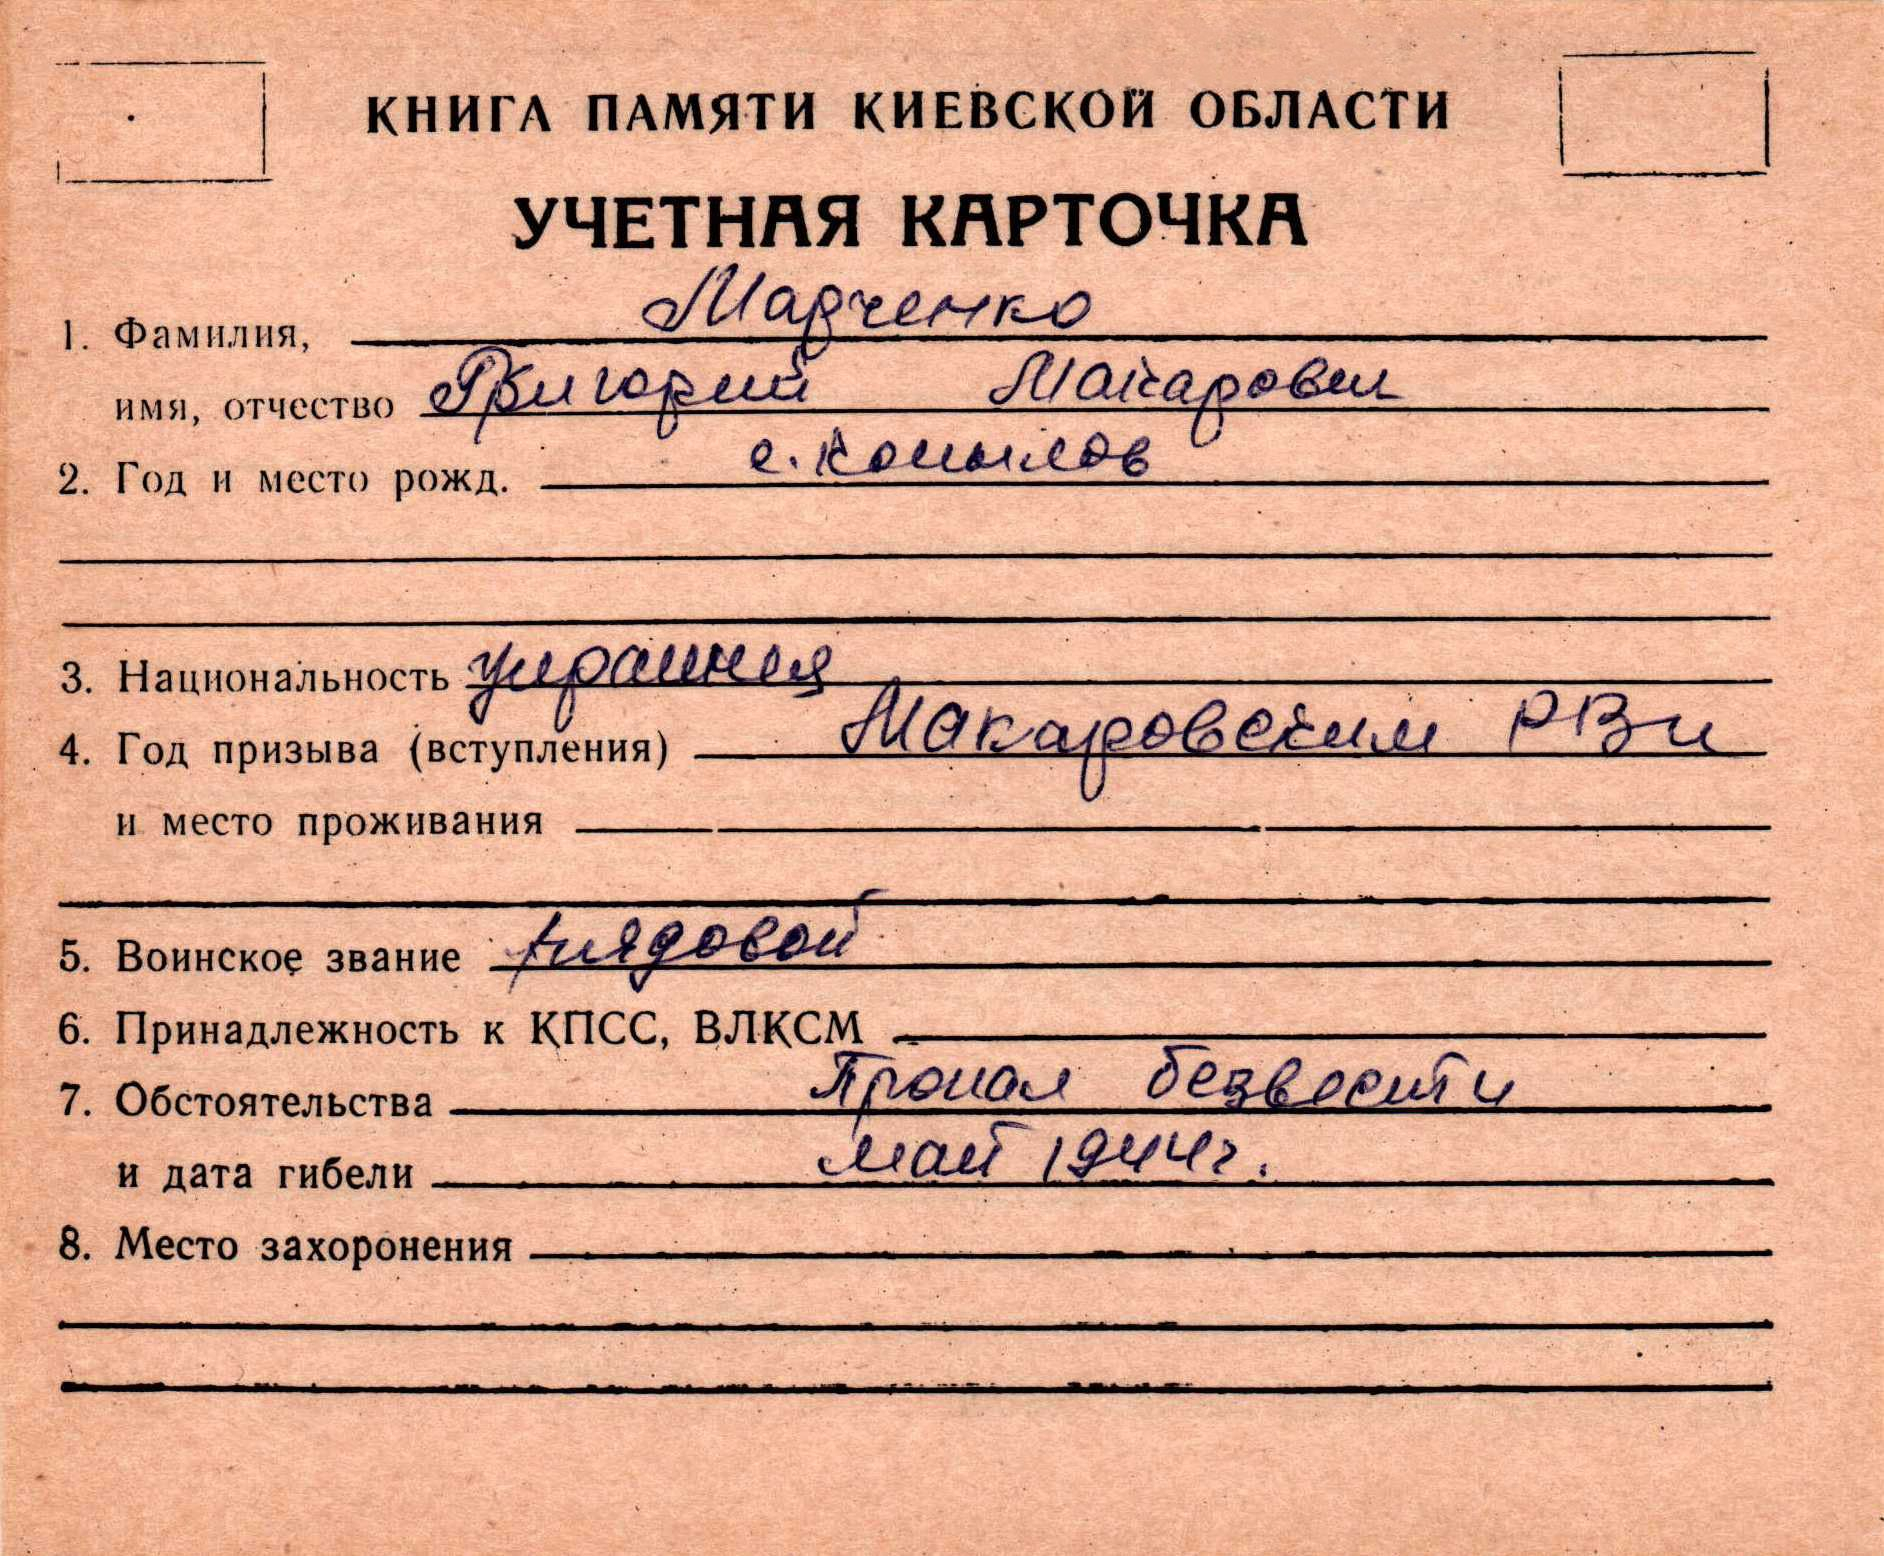 КНИГА ПАМЯТИ КИЕВСКОЙ ОБЛАСТИ
УЧЕТНАЯ КАРТОЧКА
1. Фамилия, Марченко
имя, отчество Григорий Макарович
2. Год и место рожд. с. Копылов
3. Национальность украинец
4. Год призыва (вступления) Макаровским РВК
и место проживания
5. Воинское звание рядовой
6. Принадлежность к КПСС, ВЛКСМ
7. Обстоятельства Пропал безвести
и дата гибели май 1944 г.
8. Место захоронения